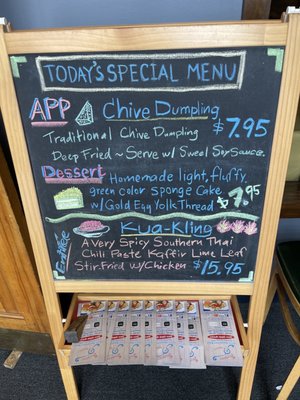 TODAY'S SPECIAL MENU
APP Chive Dumpling
Traditional Chive Dumpling $7.95
Deep Fried ~ Serve w/ Sweet Soy Sauce.
Dessert Homemade light, fluffy,
green color sponge Cake
w/ Gold Egg Yolk Thread $7.95
Entrée Kua-Kling
A very Spicy Southern Thai
Chili Paste Kaffir Lime Leaf
Stir.Fried w/Chicken $15.95